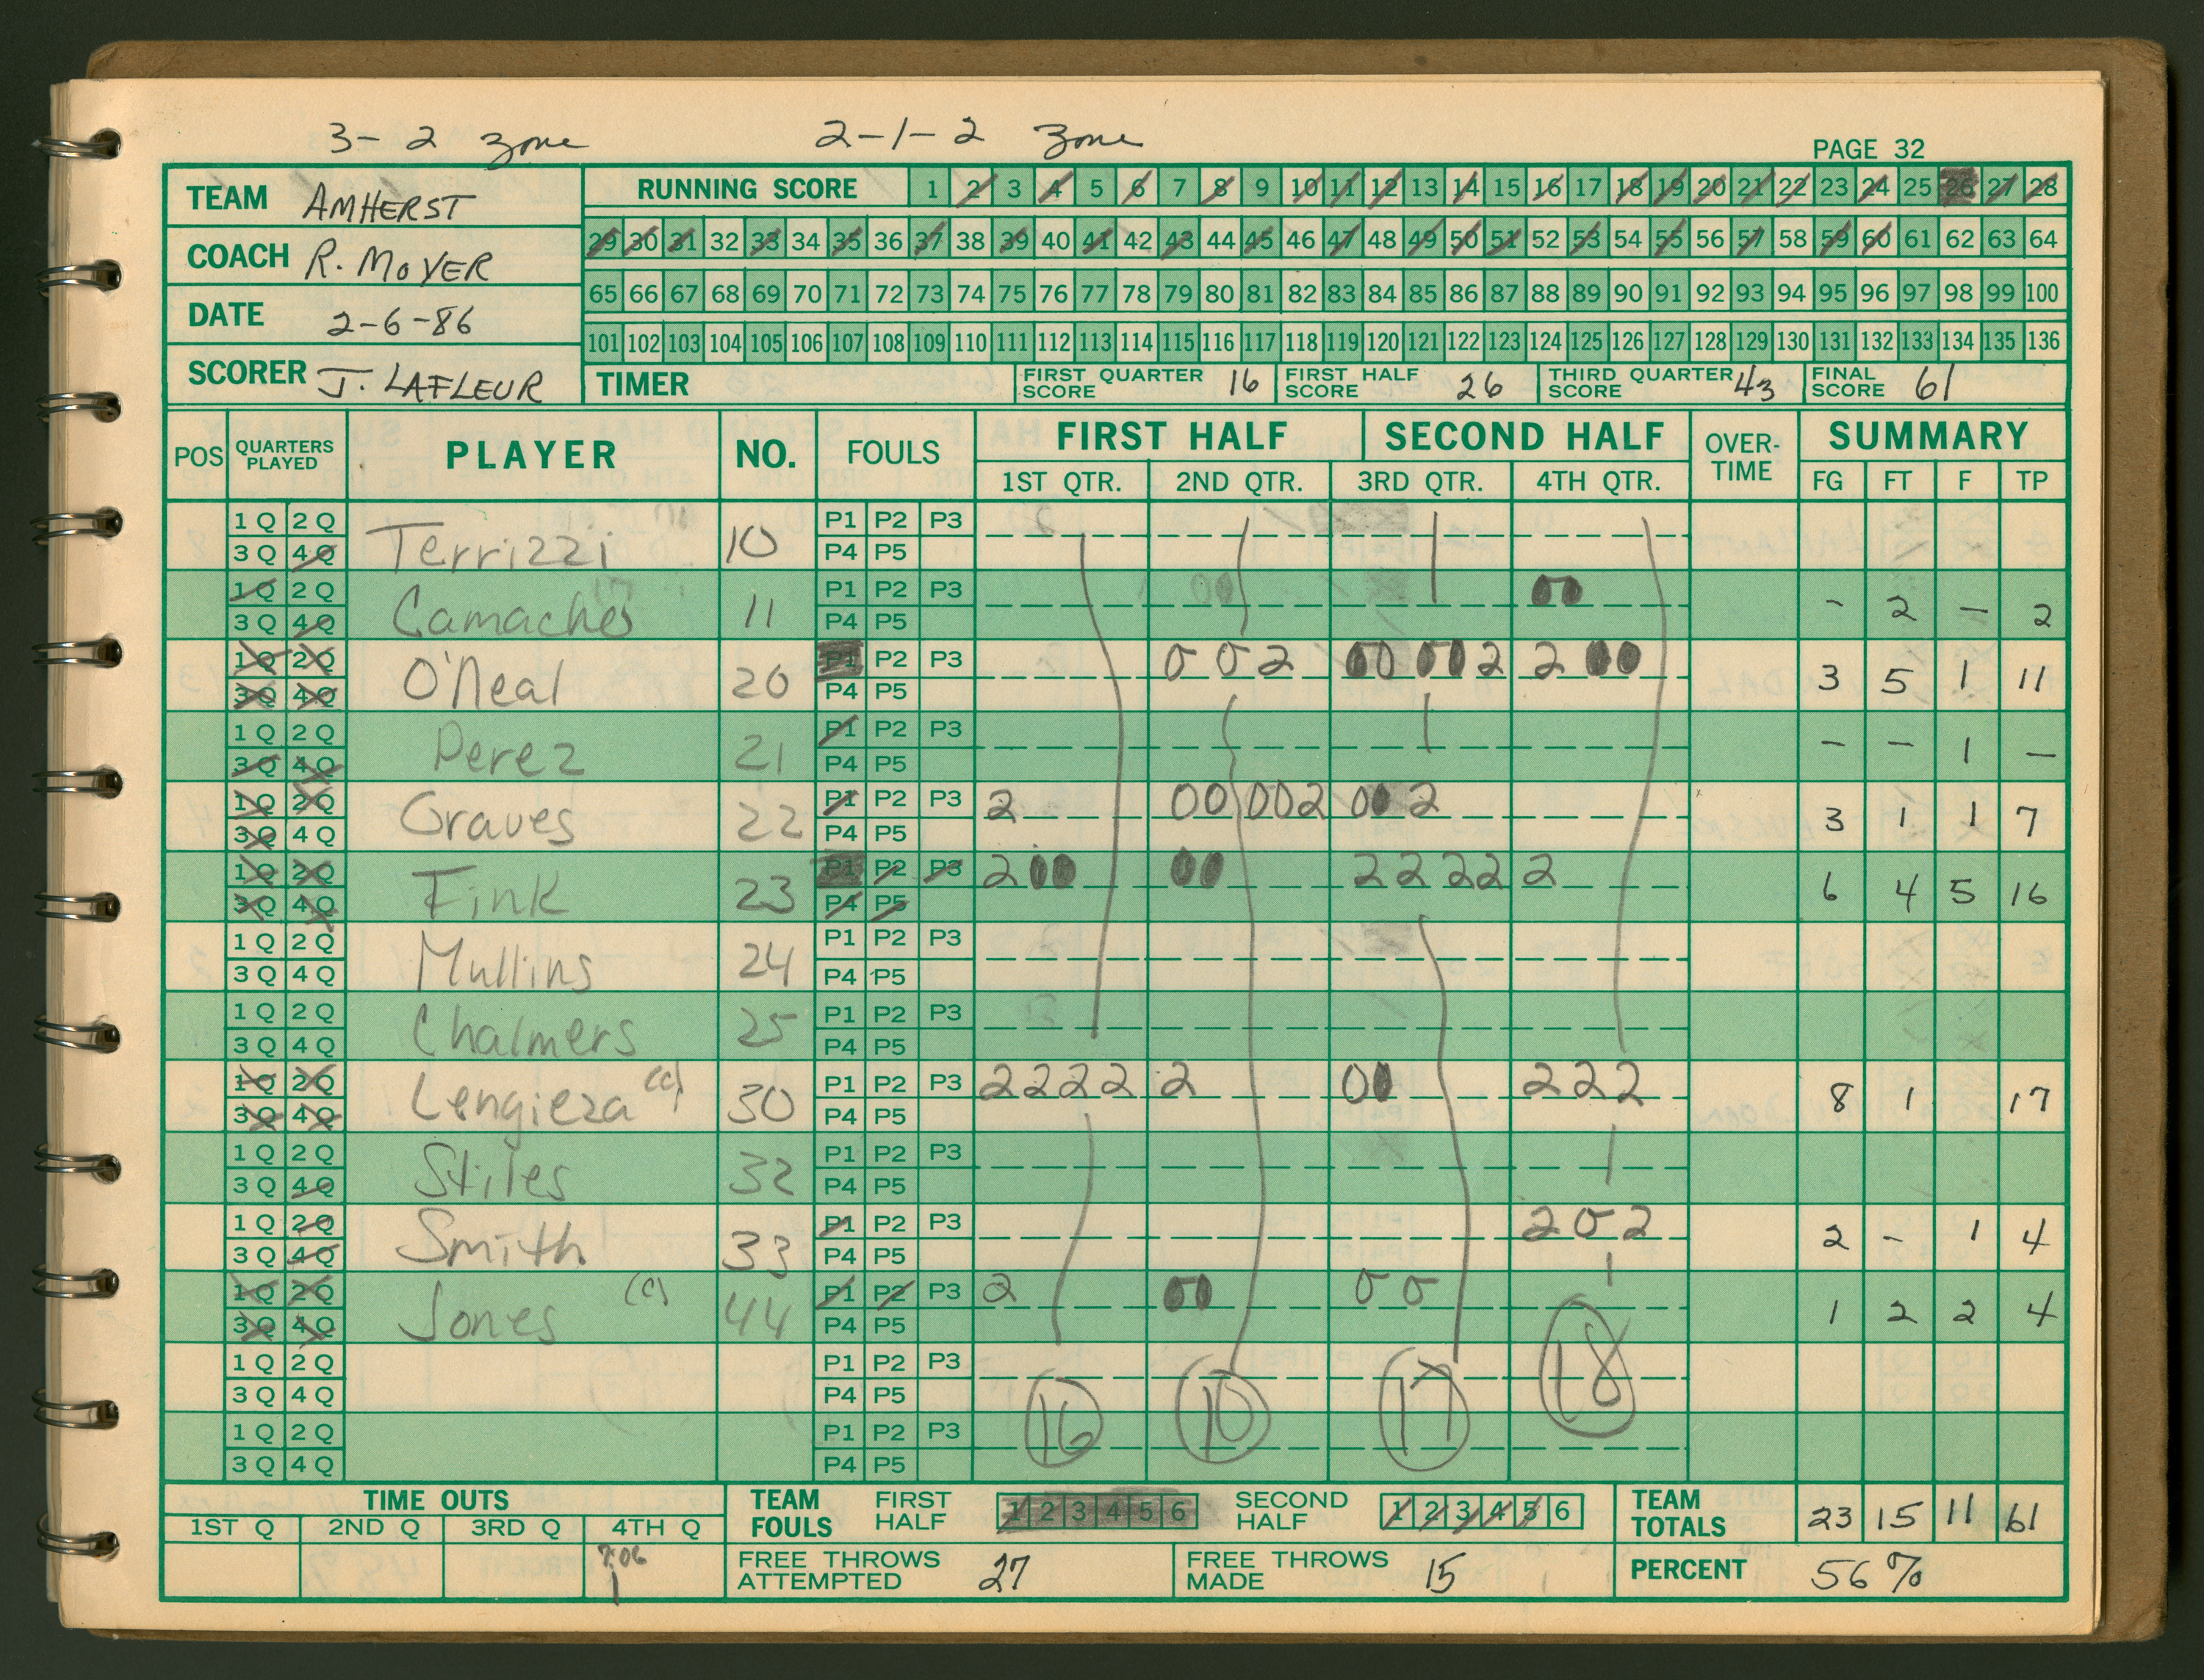 3-2 zone 2-1-2 zone
PAGE 32
TEAM AMHERST
COACH R. MOYER
DATE 2-6-86
SCORER J. LAFLEUR
RUNNING SCORE 1 2 3 4 5 6 7 8 9 10 11 12 13 14 15 16 17 18 19 20 21 22 23 24 25 26 27 28
29 30 31 32 33 34 35 36 37 38 39 40 41 42 43 44 45 46 47 48 49 50 51 52 53 54 55 56 57 58 59 60 61 62 63 64
65 66 67 68 69 70 71 72 73 74 75 76 77 78 79 80 81 82 83 84 85 86 87 88 89 90 91 92 93 94 95 96 97 98 99 100
101 102 103 104 105 106 107 108 109 110 111 112 113 114 115 116 117 118 119 120 121 122 123 124 125 126 127 128 129 130 131 132 133 134 135 136
TIMER FIRST QUARTER SCORE 16 FIRST HALF SCORE 26 THIRD QUARTER SCORE 43 FINAL SCORE 61
POS QUARTERS PLAYED PLAYER NO. FOULS FIRST HALF SECOND HALF OVER-TIME SUMMARY
1ST QTR. 2ND QTR. 3RD QTR. 4TH QTR. FG FT F TP
1Q 2Q P1 P2 P3
3Q 4Q Terrizzi 10 P4 P5
1Q 2Q P1 P2 P3 00
3Q 4Q Camacho 11 P4 P5 - 2 - 2
1Q 2Q P1 P2 P3 0 0 2 00 00 2 2 00
3Q 4Q O'Neal 20 P4 P5 3 5 1 11
1Q 2Q P1 P2 P3
3Q 4Q Perez 21 P4 P5 - - 1 -
1Q 2Q P1 P2 P3 2 00 00 2 00 2
3Q 4Q Graves 22 P4 P5 3 1 1 7
1Q 2Q P1 P2 P3 2 00 00 2 2 2 2 2
3Q 4Q Fink 23 P4 P5 6 4 5 16
1Q 2Q P1 P2 P3
3Q 4Q Mullins 24 P4 P5
1Q 2Q P1 P2 P3
3Q 4Q Chalmers 25 P4 P5
1Q 2Q P1 P2 P3 2 2 2 2 2 00 2 2 2
3Q 4Q Lengieza (c) 30 P4 P5 8 1 17
1Q 2Q P1 P2 P3
3Q 4Q Stiles 32 P4 P5
1Q 2Q P1 P2 P3 2 0 2
3Q 4Q Smith 33 P4 P5 2 - 1 4
1Q 2Q P1 P2 P3 2 00 0 0
3Q 4Q Jones (c) 44 P4 P5 1 2 2 4
1Q 2Q P1 P2 P3
3Q 4Q P4 P5
16 10 17 18
1Q 2Q P1 P2 P3
3Q 4Q P4 P5
TIME OUTS
1ST Q 2ND Q 3RD Q 4TH Q
7:06
1
TEAM FOULS FIRST HALF 1 2 3 4 5 6 SECOND HALF 1 2 3 4 5 6
TEAM TOTALS 23 15 11 61
FREE THROWS ATTEMPTED 27 FREE THROWS MADE 15 PERCENT 56%